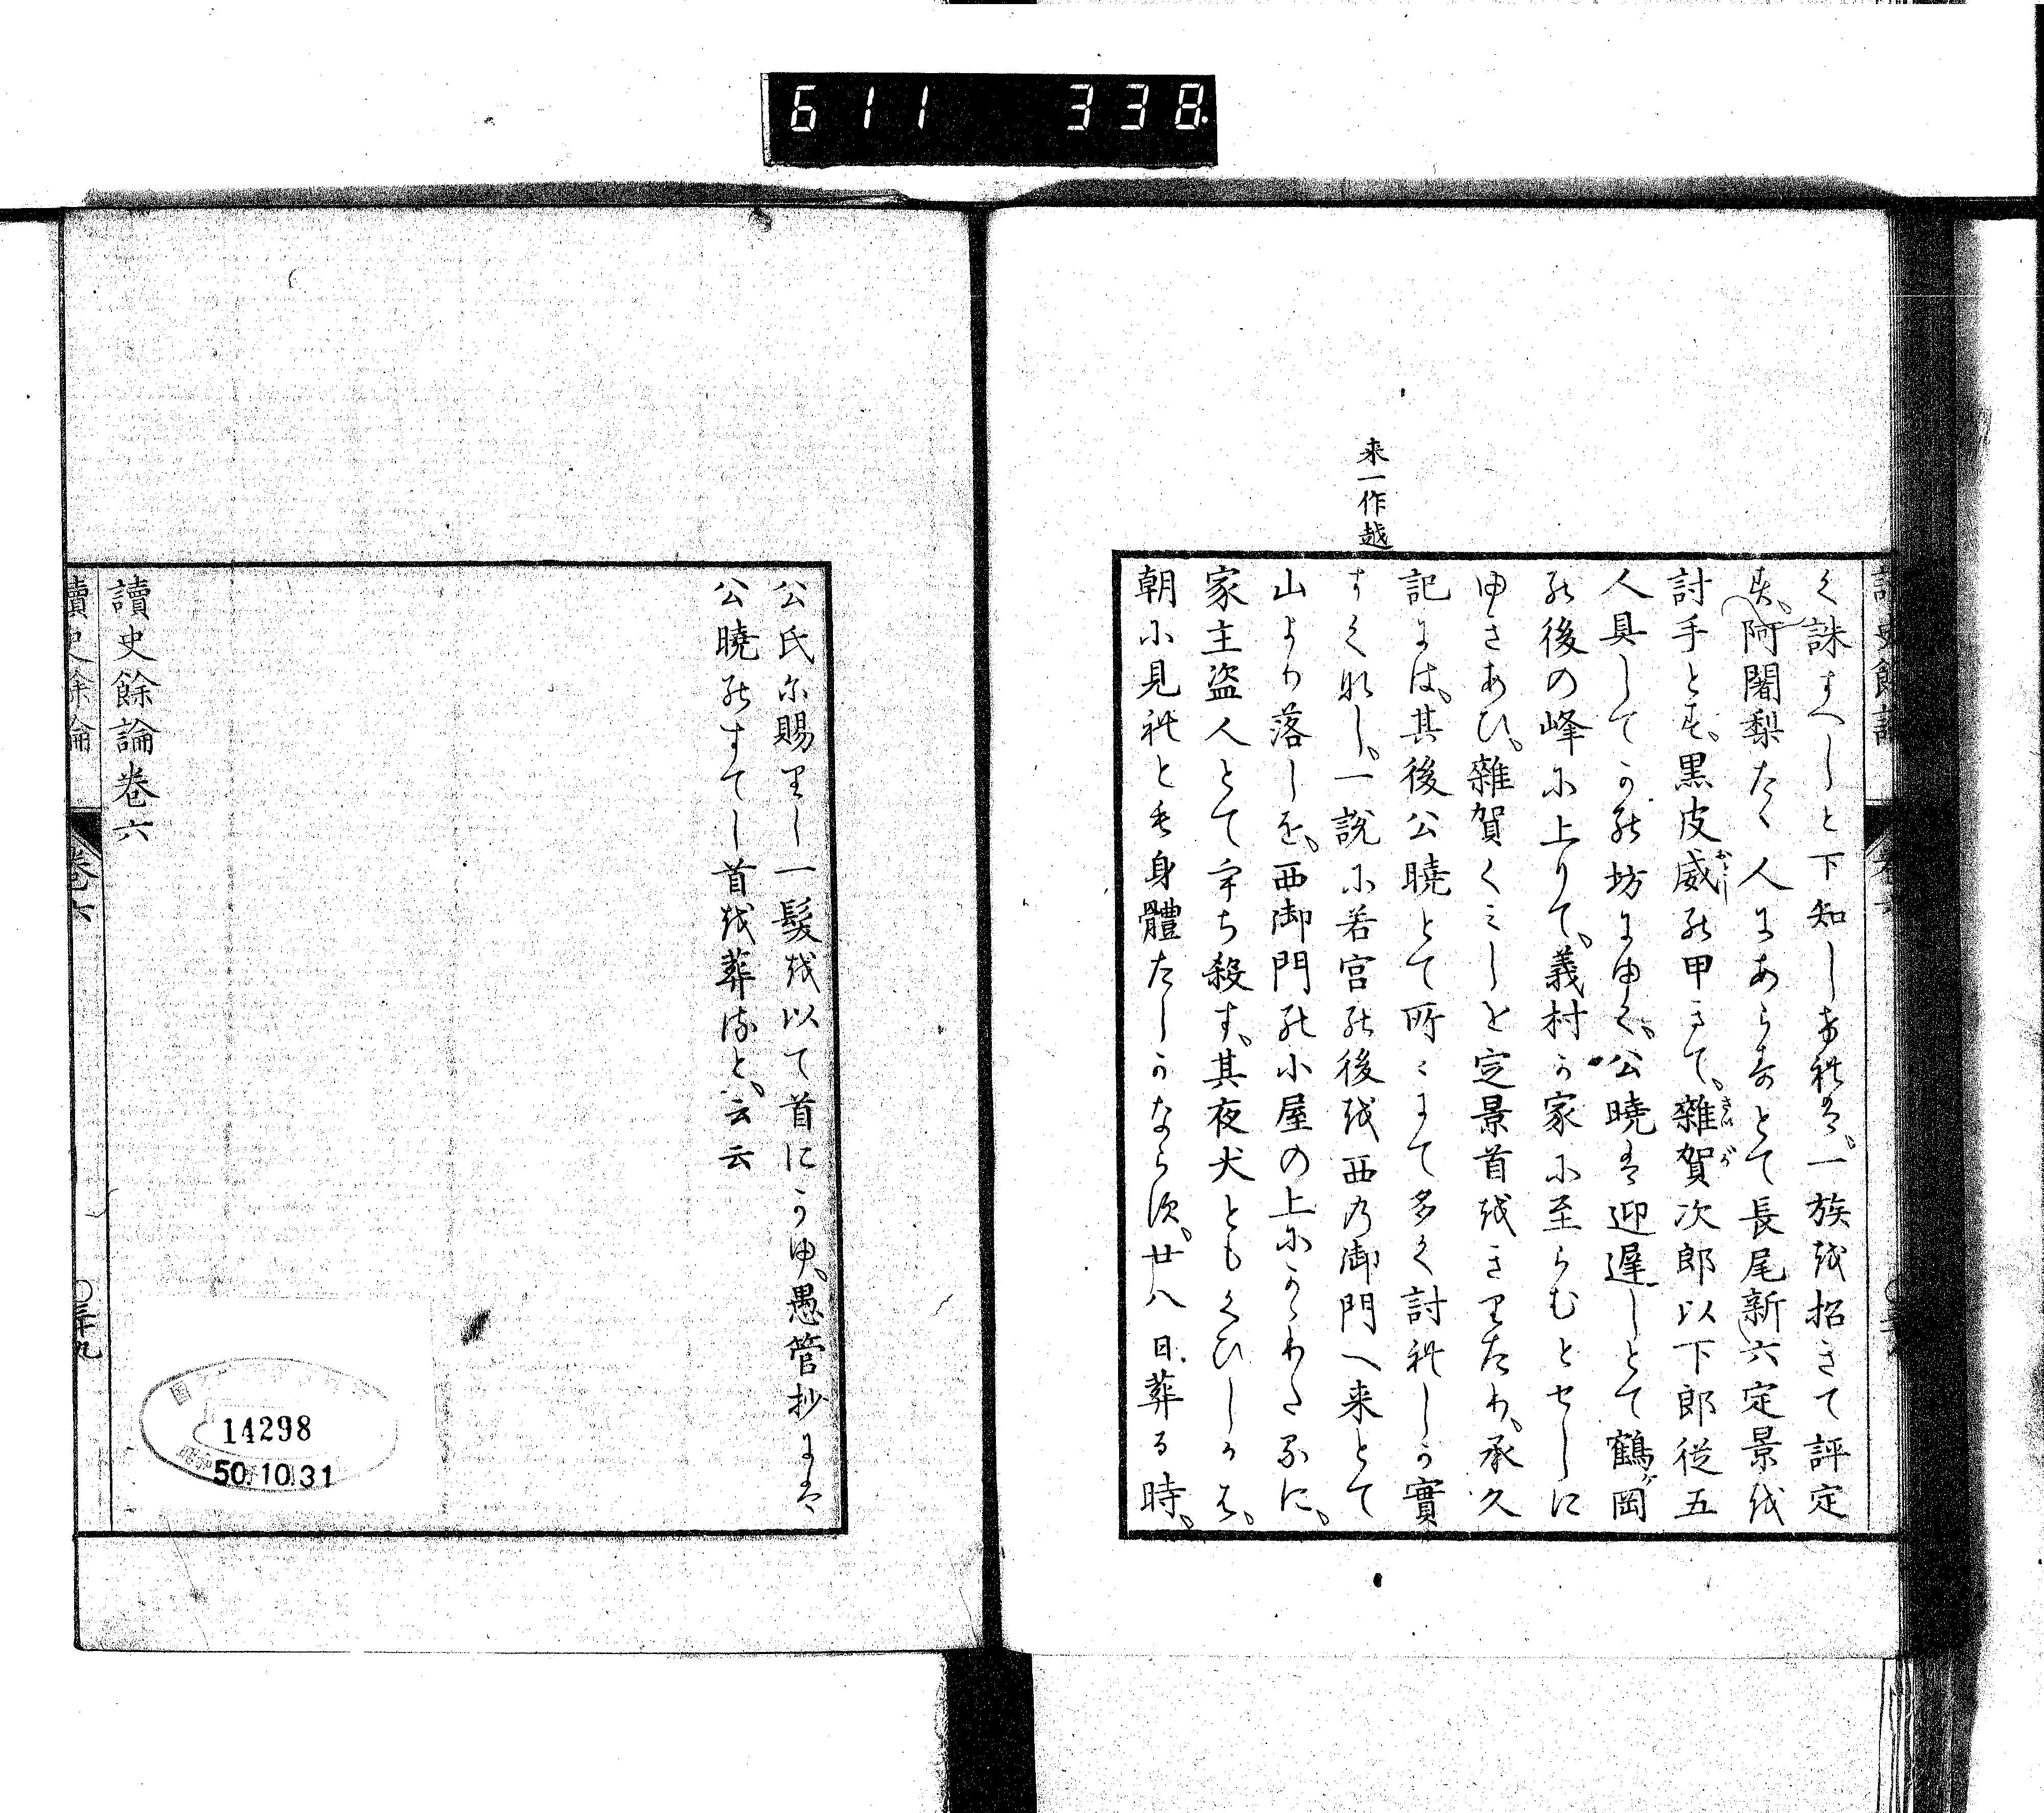 611 338
来一作越
く誅すへしと下知しけれは、一族を招きて評定
す、阿闍梨たゝ人にあらすとて長尾新六定景を
討手とす、黒皮威の甲きて、雑賀次郎以下郎従五
人具してかの坊にゆく、公暁は迎遅しとて鶴ヶ岡
の後の峰に上りて、義村か家に至らむとせしに
ゆきあひ、雑賀くみしと定景首をきりたり、承久
記には、其後公暁とて所々にて多く討れしか實
すくなし、一説に若宮の後を西の御門へ来とて
山より落しを、西御門の小屋の上にかゝりたるに、
家主盗人とて守ち殺す、其夜犬ともくひしかは、
朝に見れとも身體たしかならす、廿八日葬る時、
公氏に賜りし一髪を以て首にかゆ、愚管抄には
公曉のすてし首を葬ると、云云
讀史餘論巻六
讀史餘論 巻六 三十九
14298
50.10.31